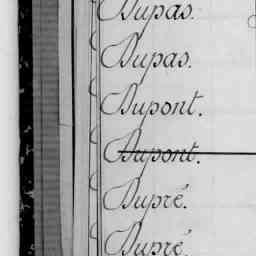 Dupas.
Dupas.
Dupont.
Dupont.
Dupré.
Dupré.